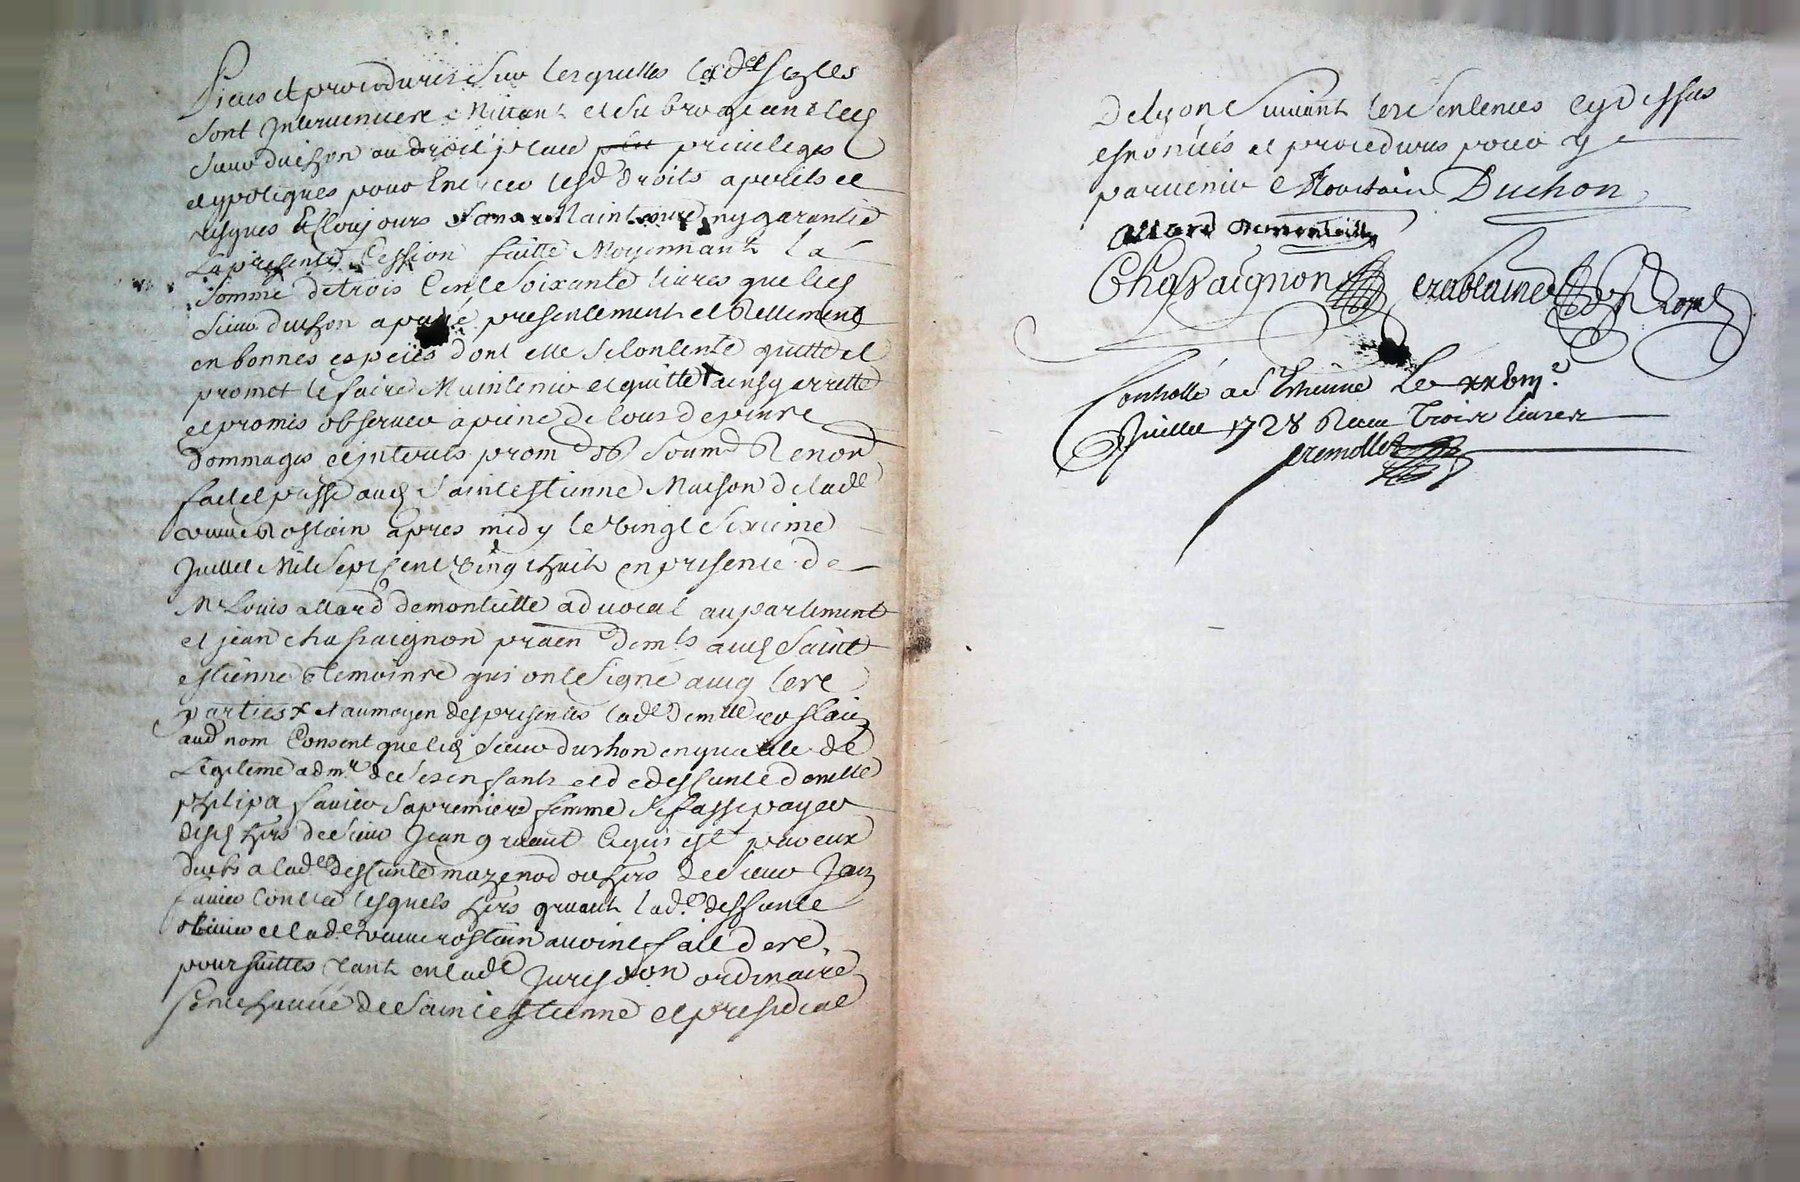 pieces et procedures sur lesquelles lad.e
sont intervenues Mettant et subrogeant led
sieur duchon au droit place privileges
et ypoteques pour Exercer lesd droits a perils et
risques Et toujours sans Maintenue ny garantie
La presente Cession faitte Moyennant la
somme de trois Cent soixante livres que led
sieur duchon a payé presentement et Réellement
en bonnes especes dont elle se Contente quitte et
promet le faire Maintenir et quitter ainsy arretté
et promis observer a peine de tous depens
dommages et interets prom ob soum Renon
fait et passé aud Saint estienne Maison de lad.e
veuve Rostain apres midy le vingt sixieme
Juillet Mil sept Cent vingt huit en presence de
Mr Louis allard demontville advocat au parlement
et jean chassaignon praen demts aud Saint
estienne temoins qui ont signé avec les
parties et au moyen des presentes lad.e dem.lle rostain
aud nom Consent que led sieur duchon en qualité de
Legitime adm.r de ses enfants et de deffunte dem.lle
philipa favier sa premiere femme se fasse payer
desd hers de sieur Jean gruant Ce qui est par eux
dus a lad.e deffunte mazenod ou hers de sieur Jean
favier Contre lesquels hers gruant lad.e deffunte
et lad.e veuve rostain auoint fait des
poursuittes tant en lad.e Juris.on ordinaire
senechaucé de Saint estienne et presidial
de Lyon suivant les sentences cy dessus
enoncés et procedures pour y
parvenir Rostain Duchon
allard demontville
Chassaignon
Controllé a St Etienne Le xxvii.e
Juillet 1728 Recu Trois livres
premollet